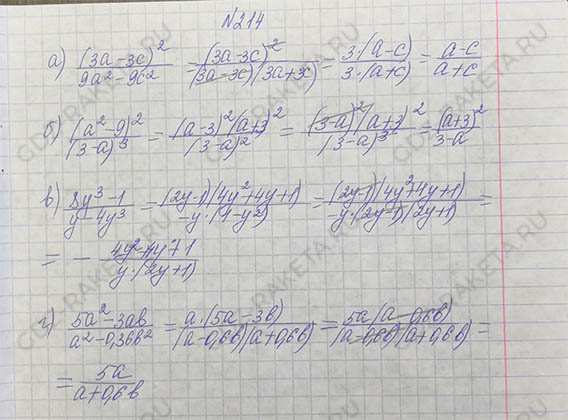 №214
а) (3a-3c)²/(9a²-9c²) = (3a-3c)²/((3a-3c)(3a+3c)) = 3·(a-c)/(3·(a+c)) = (a-c)/(a+c)
б) (a²-9)²/(3-a)³ = (a-3)²(a+3)²/(3-a)² = (3-a)²(a+3)²/(3-a)³ = (a+3)²/(3-a)
в) (8y³-1)/(y-4y³) = (2y-1)(4y²+4y+1)/(-y·(1-y²)) = (2y-1)(4y²+4y+1)/(-y·(2y-1)(2y+1)) =
= - (4y²+4y+1)/(y·(2y+1))
г) (5a²-3ab)/(a²-0,36b²) = a·(5a-3b)/((a-0,6b)(a+0,6b)) = 5a(a-0,6b)/((a-0,6b)(a+0,6b)) =
= 5a/(a+0,6b)
GDZ-RAKETA.RU